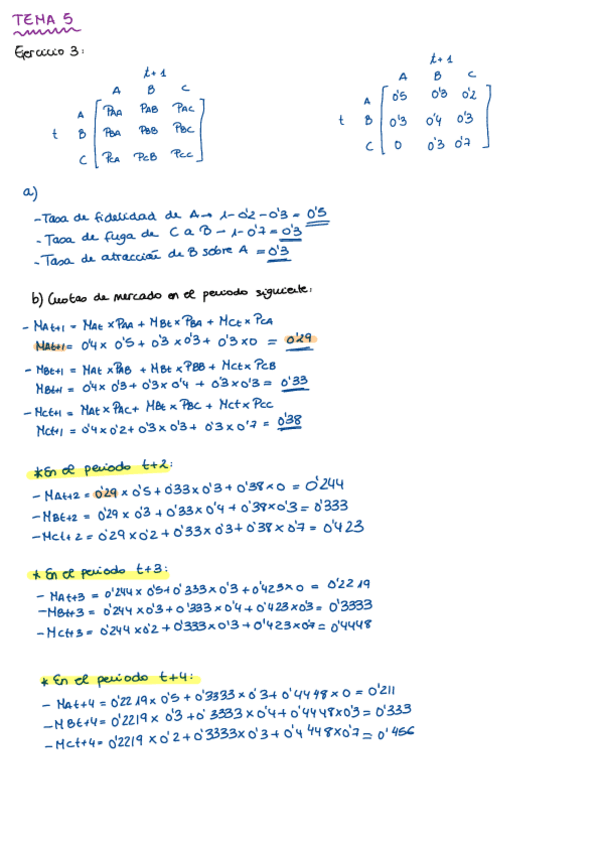 TEMA 5
Ejercicio 3:
t+1
A B C
A PAA PAB PAC
t B PBA PBB PBC
C PCA PCB PCC
t+1
A B C
A 0'5 0'3 0'2
t B 0'3 0'4 0'3
C 0 0'3 0'7
a)
- Tasa de fidelidad de A → 1-0'2-0'3 = 0'5
- Tasa de fuga de C a B → 1-0'7 = 0'3
- Tasa de atracción de B sobre A = 0'3
b) Cuotas de mercado en el periodo siguiente:
- MAt+1 = MAt × PAA + MBt × PBA + MCt × PCA
MAt+1 = 0'4 × 0'5 + 0'3 × 0'3 + 0'3 × 0 = 0'29
- MBt+1 = MAt × PAB + MBt × PBB + MCt × PCB
MBt+1 = 0'4 × 0'3 + 0'3 × 0'4 + 0'3 × 0'3 = 0'33
- MCt+1 = MAt × PAC + MBt × PBC + MCt × PCC
MCt+1 = 0'4 × 0'2 + 0'3 × 0'3 + 0'3 × 0'7 = 0'38
* En el periodo t+2:
- MAt+2 = 0'29 × 0'5 + 0'33 × 0'3 + 0'38 × 0 = 0'244
- MBt+2 = 0'29 × 0'3 + 0'33 × 0'4 + 0'38 × 0'3 = 0'333
- MCt+2 = 0'29 × 0'2 + 0'33 × 0'3 + 0'38 × 0'7 = 0'423
* En el periodo t+3:
- MAt+3 = 0'244 × 0'5 + 0'333 × 0'3 + 0'423 × 0 = 0'2219
- MBt+3 = 0'244 × 0'3 + 0'333 × 0'4 + 0'423 × 0'3 = 0'3333
- MCt+3 = 0'244 × 0'2 + 0'333 × 0'3 + 0'423 × 0'7 = 0'4448
* En el periodo t+4:
- MAt+4 = 0'2219 × 0'5 + 0'3333 × 0'3 + 0'4448 × 0 = 0'211
- MBt+4 = 0'2219 × 0'3 + 0'3333 × 0'4 + 0'4448 × 0'3 = 0'333
- MCt+4 = 0'2219 × 0'2 + 0'3333 × 0'3 + 0'4448 × 0'7 = 0'456